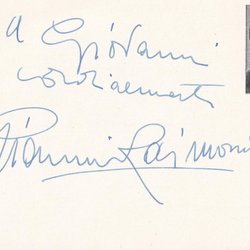 a Giovanni
cordialmente
Gianni Raimondi